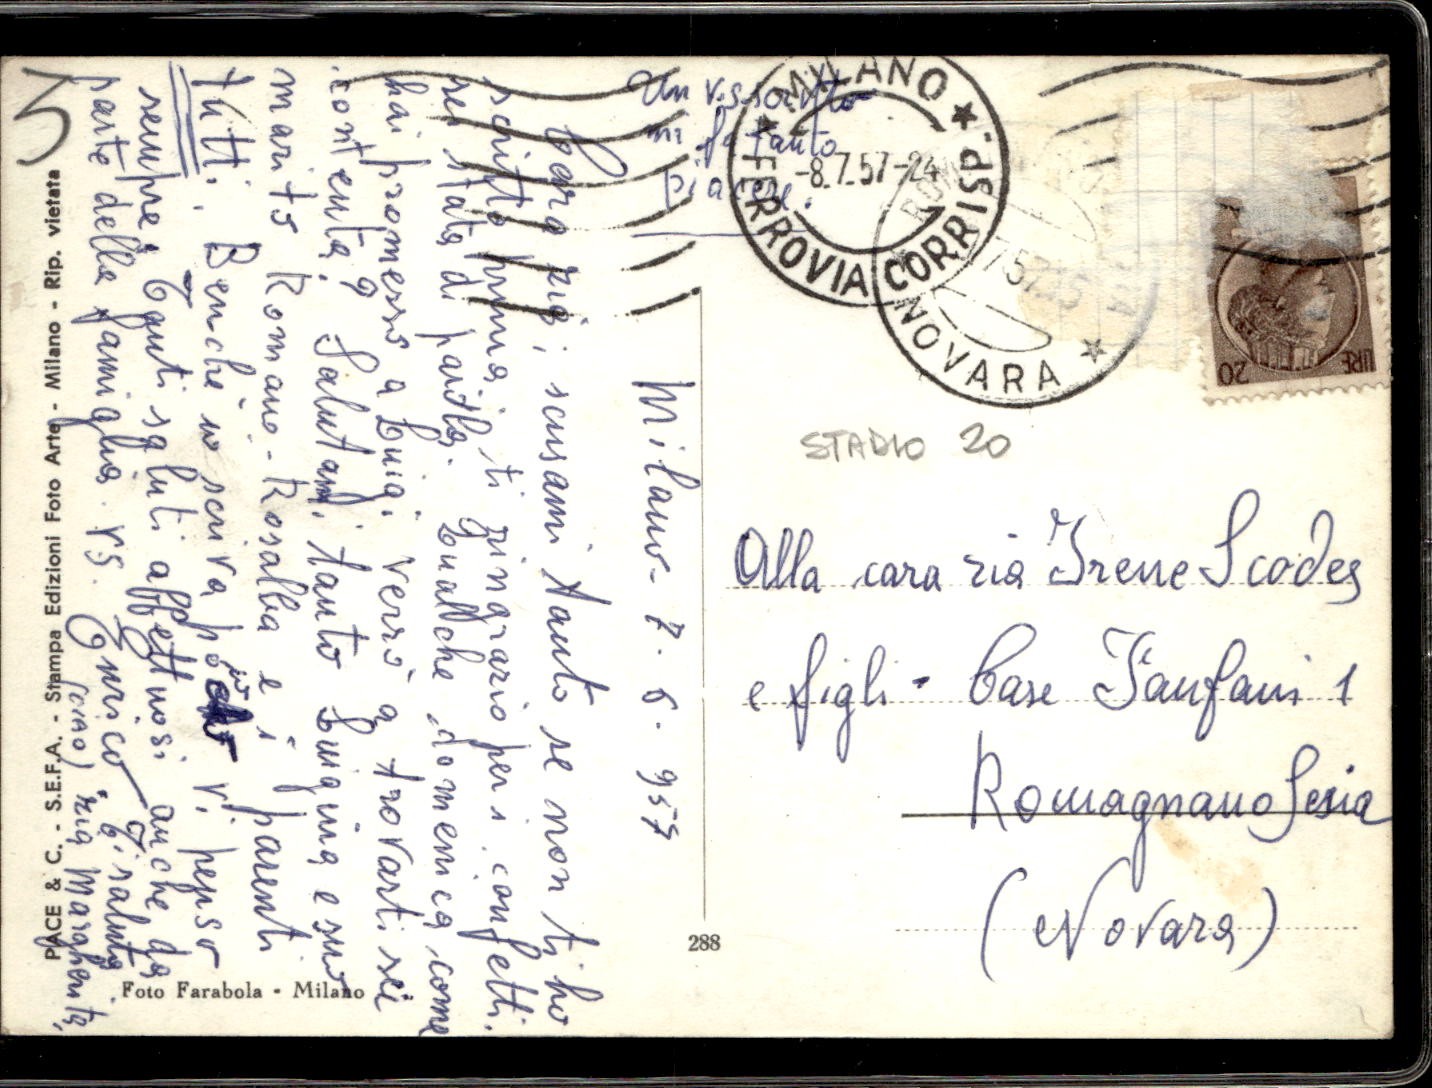 Un vs. scritto
mi fa tanto
piacere.
Milano - 7. 6. 957
Cara zia; scusami tanto se non ti ho
scritto prima, ti ringrazio per i confetti.
sei stata di parola. Qualche domenica come
hai promesso a Luigi verrò a trovarti sei
contenta? Salutami tanto Luigina e suo
marito Romano - Rosalba e i parenti
tutti. Benchè io scriva poco vi penso
sempre, tanti saluti affettuosi anche da
parte della famiglia vs. Enrico
Ti saluta
(ciao) zia Margherita,
PACE & C. - S.E.F.A. - Stampa Edizioni Foto Arte - Milano - Rip. vietata
Foto Farabola - Milano
288
MILANO
FERROVIA CORRISP.
-8.7.57-24
1
NOVARA
LIRE 20
STADIO 20
Alla cara zia Irene Scodes
e figli - Case Fanfani 1
Romagnano Sesia
(Novara)